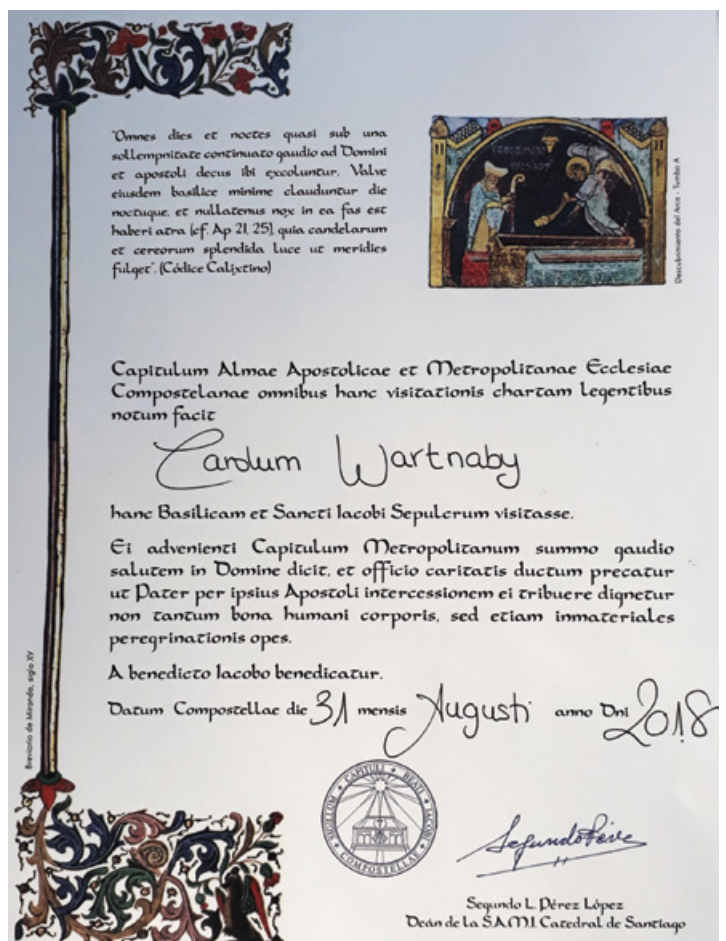 "Omnes dies et noctes quasi sub una
sollempnitate continuato gaudio ad Domini
et apostoli decus ibi excoluntur. Valve
eiusdem basilice minime clauduntur die
noctuque, et nullatenus nox in ea fas est
haberi atra [cf. Ap 21, 25], quia candelarum
et cereorum splendida luce ut meridies
fulget". (Códice Calixtino)
Descubrimiento del Arca - Tumbo A
Capitulum Almae Apostolicae et Metropolitanae Ecclesiae
Compostelanae omnibus hanc visitationis chartam legentibus
notum facit
Carolum Wartnaby
hanc Basilicam et Sancti Iacobi Sepulcrum visitasse.
Ei advenienti Capitulum Metropolitanum summo gaudio
salutem in Domine dicit, et officio caritatis ductum precatur
ut Pater per ipsius Apostoli intercessionem ei tribuere dignetur
non tantum bona humani corporis, sed etiam inmateriales
peregrinationis opes.
A benedicto Iacobo benedicatur.
Datum Compostellae die 31 mensis Augusti anno Dni 2018
Breviario de Miranda, siglo XV
SIGILLUM CAPITULI BEATI JACOBI COMPOSTELLAE
Segundo L. Pérez López
Deán de la S.A.M.I. Catedral de Santiago